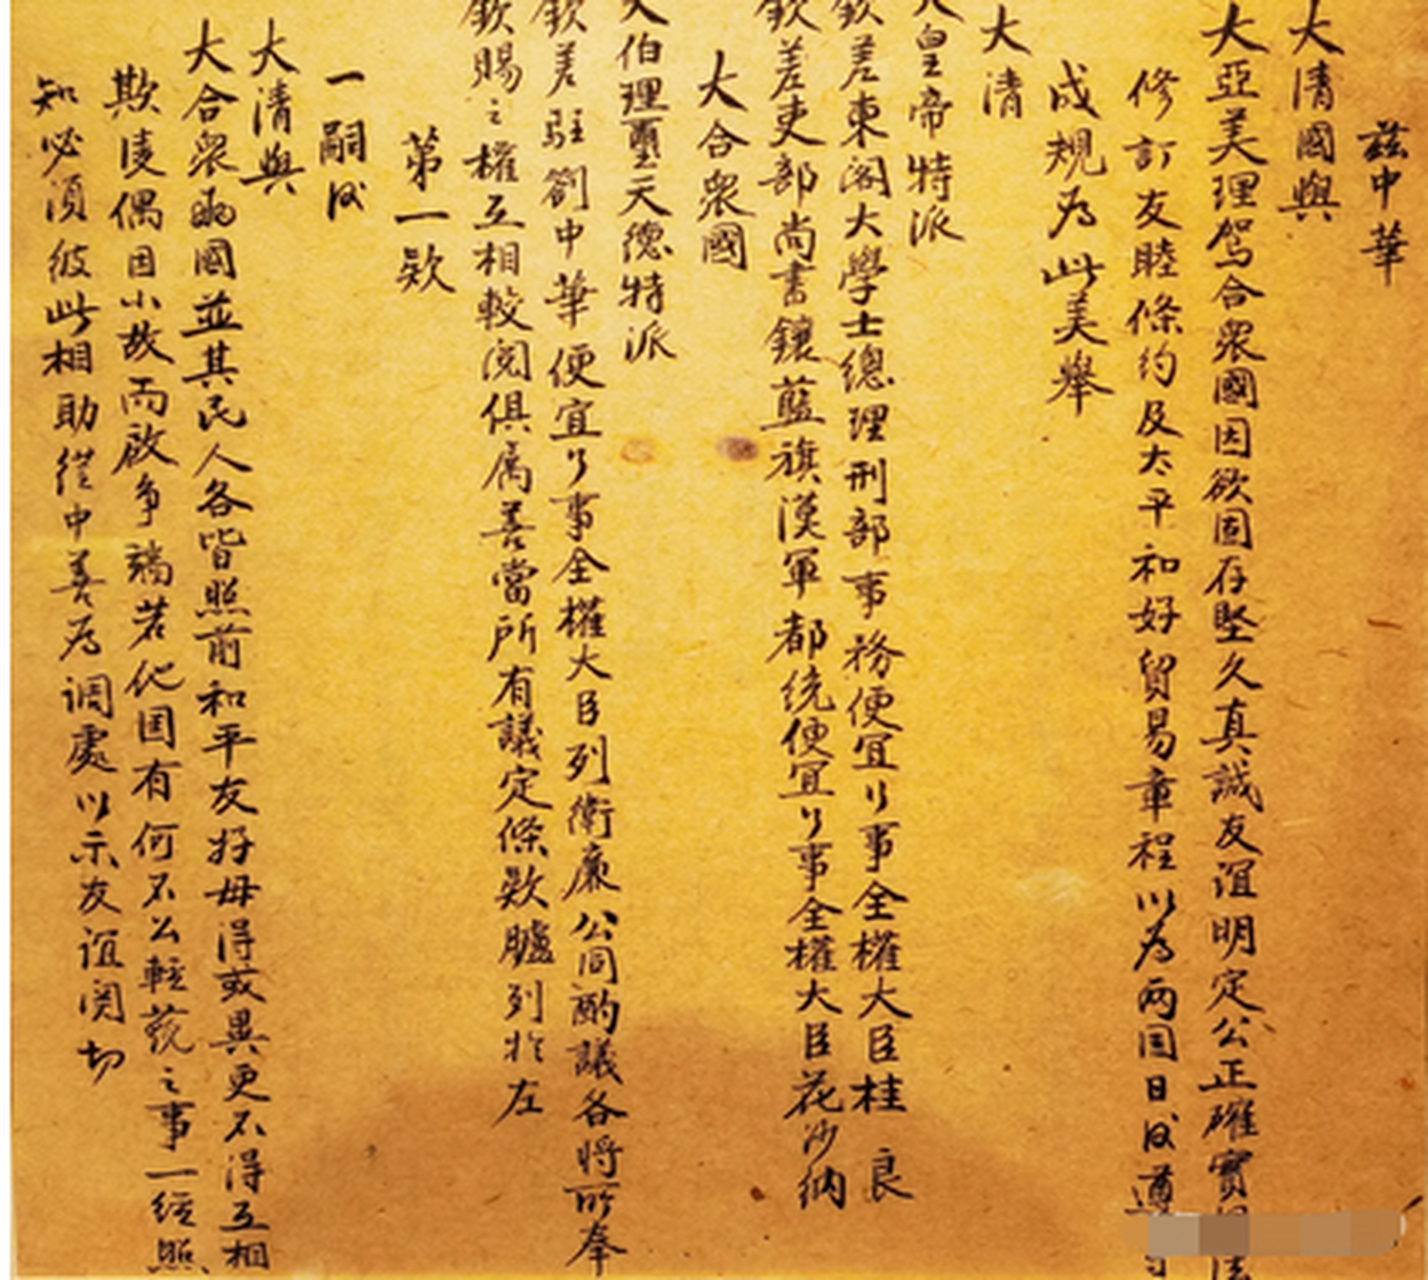 茲中華
大清國與
大亞美理駕合衆國因欲固存堅久真誠友誼明定公正確實
修訂友睦條約及太平和好貿易章程以為两国日後遵
成規為此美舉
大清
大皇帝特派
欽差東閣大學士總理刑部事務便宜行事全權大臣桂良
欽差吏部尚書鑲藍旗漢軍都統便宜行事全權大臣花沙納
大合衆國
大伯理璽天德特派
欽差駐劄中華便宜行事全權大臣列衛廉公同酌議各將所奉
欽賜之權互相較閱俱屬善當所有議定條欵臚列於左
第一欵
一嗣後
大清與
大合衆兩國並其民人各皆照前和平友好毋得或異更不得互相
欺凌偶因小故而啟争端若他国有何不公輕藐之事一經照
知必須彼此相助從中善為調處以示友誼関切